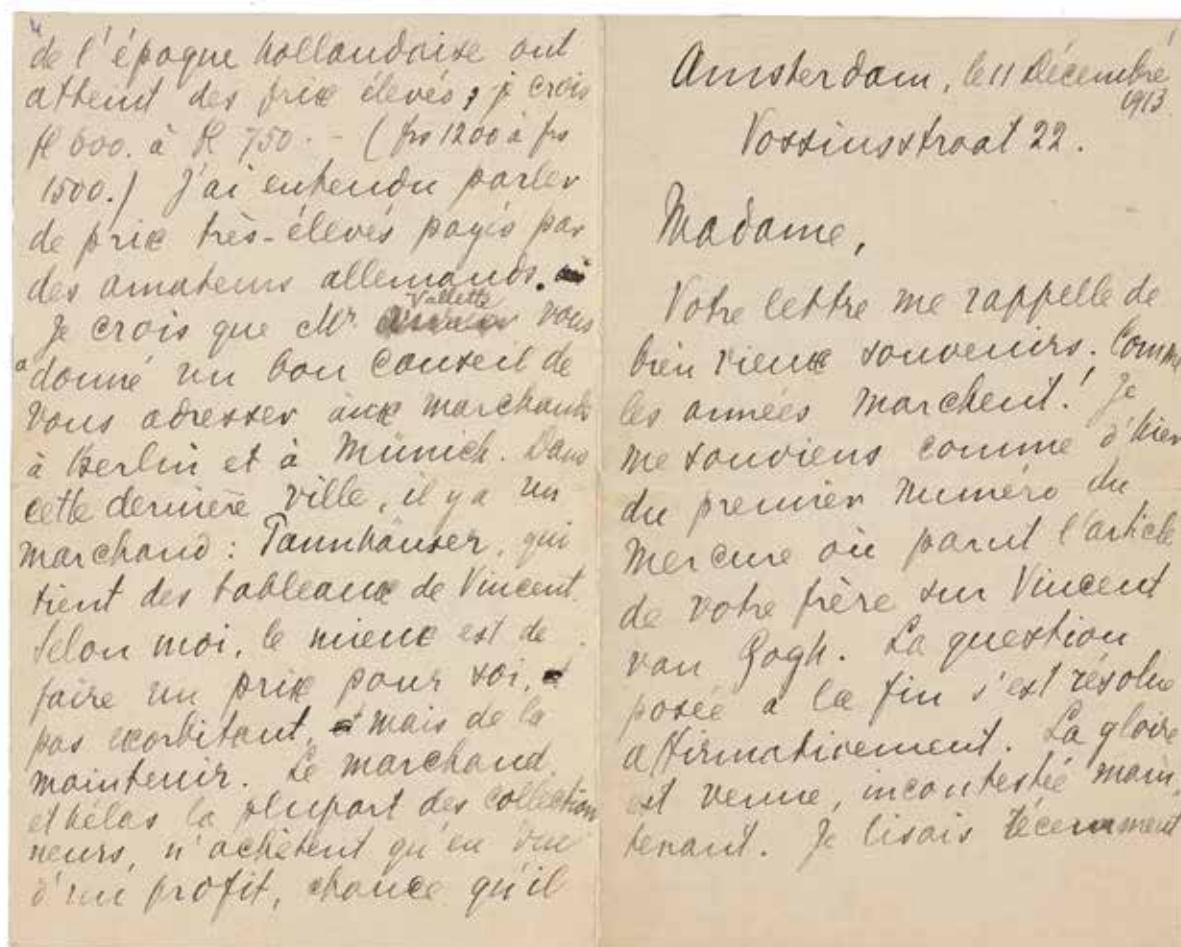 4
de l'époque hollandaise ont
atteint des prix élevés, je crois
fl 600. à fl 750. - (frs 1200 à frs
1500.) J'ai entendu parler
de prix très-élevés payés par
des amateurs allemands.
Je crois que Mr Vallette vous
a donné un bon conseil de
vous adresser aux marchands
à Berlin et à Münich. Dans
cette dernière ville, il y a un
marchand: Tannhäuser, qui
tient des tableaux de Vincent.
Selon moi, le mieux est de
faire un prix pour soi,
pas exorbitant, mais de la
maintenir. Le marchand
et hélas la plupart des collection
neurs, n'achètent qu'en vue
d'un profit, chance qu'il
Amsterdam, le 11 Décembre
1913
Vossiusstraat 22.
Madame,
Votre lettre me rappelle de
bien vieux souvenirs. Comme
les années marchent! Je
me souviens comme d'hier
du premier numéro du
Mercure où parut l'article
de votre frère sur Vincent
van Gogh. La question
posée à la fin s'est résolue
affirmativement. La gloire
est venue, incontestée main,
tenant. Je lisais récemment